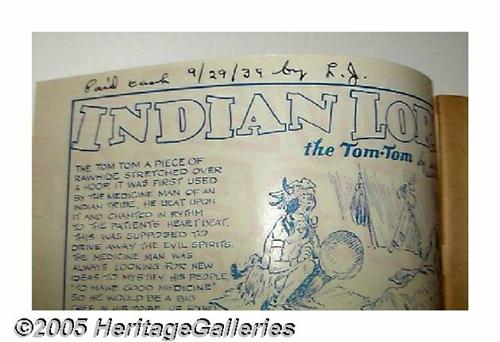 Paid cash 9/29/39 by L.J.
INDIAN LOR
the Tom-Tom by
THE TOM TOM A PIECE OF
RAWHIDE STRETCHED OVER
A HOOP. IT WAS FIRST USED
BY THE MEDICINE MAN OF AN
INDIAN TRIBE. HE BEAT UPON
IT AND CHANTED IN RYTHM
TO THE PATIENTS HEART BEAT.
THIS WAS SUPPOSED TO
DRIVE AWAY THE EVIL SPIRITS.
THE MEDICINE MAN WAS
ALWAYS LOOKING FOR NEW
IDEAS TO MYSTIFY HIS PEOPLE,
"TO MAKE GOOD MEDICINE"
SO HE WOULD BE A BIG
CHIEF IN HIS TRIBE. HE FOUND
©2005 HeritageGalleries